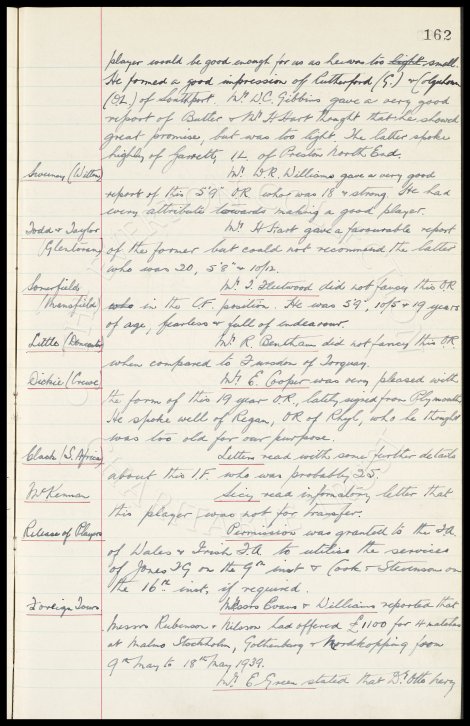 162
player would be good enough for us as he was too light, small.
He formed a good impression of Rutherford (G.) & Colquhoun
(OL.) of Southport. Mr. W.C. Gibbins gave a very good
report of Butler & Mr. H Hart thought that he showed
great promise, but was too light. The latter spoke
highly of Garrett, IL of Preston North End.
Sweeney (Wilton) Mr. W.R. Williams gave a very good
report of this 5'9" OR who was 18 & strong. He had
every attribute towards making a good player.
Todd & Taylor Mr. H Hart gave a favourable report
(Glentoran) of the former but could not recommend the latter
who was 20, 5'8" & 10/12.
Somerfields Mr. T. Fleetwood did not fancy this OR
(Mansfield) who in the C.F. position. He was 5'9", 10/5 & 19 years
of age, fearless & full of endeavour.
Little (Doncaster) Mr. R. Bentham did not fancy this OR.
when compared to Fursdon of Torquay.
Dickie (Crewe) Mr. E. Cooper was very pleased with
the form of this 19 year OR, lately signed from Plymouth.
He spoke well of Regan, OR of Rhyl, who he thought
was too old for our purpose.
Clack (S. Africa) Letters read with some further details
about this I.F. who was probably 25.
McKennan Secy read infomatory letter that
this player was not for transfer.
Release of Players Permission was granted to the F.A.
of Wales & Irish F.A. to utilise the services
of Jones TG on the 9th inst & Cook & Stevenson on
the 16th inst, if required.
Foreign Tours. Messrs Evans & Williams reported that
Messrs Rubenson & Nilsson had offered £1100 for 4 matches
at Malmo Stockholm, Gothenburg & Nordkopping from
9th May to 18th May 1939.
Mr. E Green stated that Dr. Otto